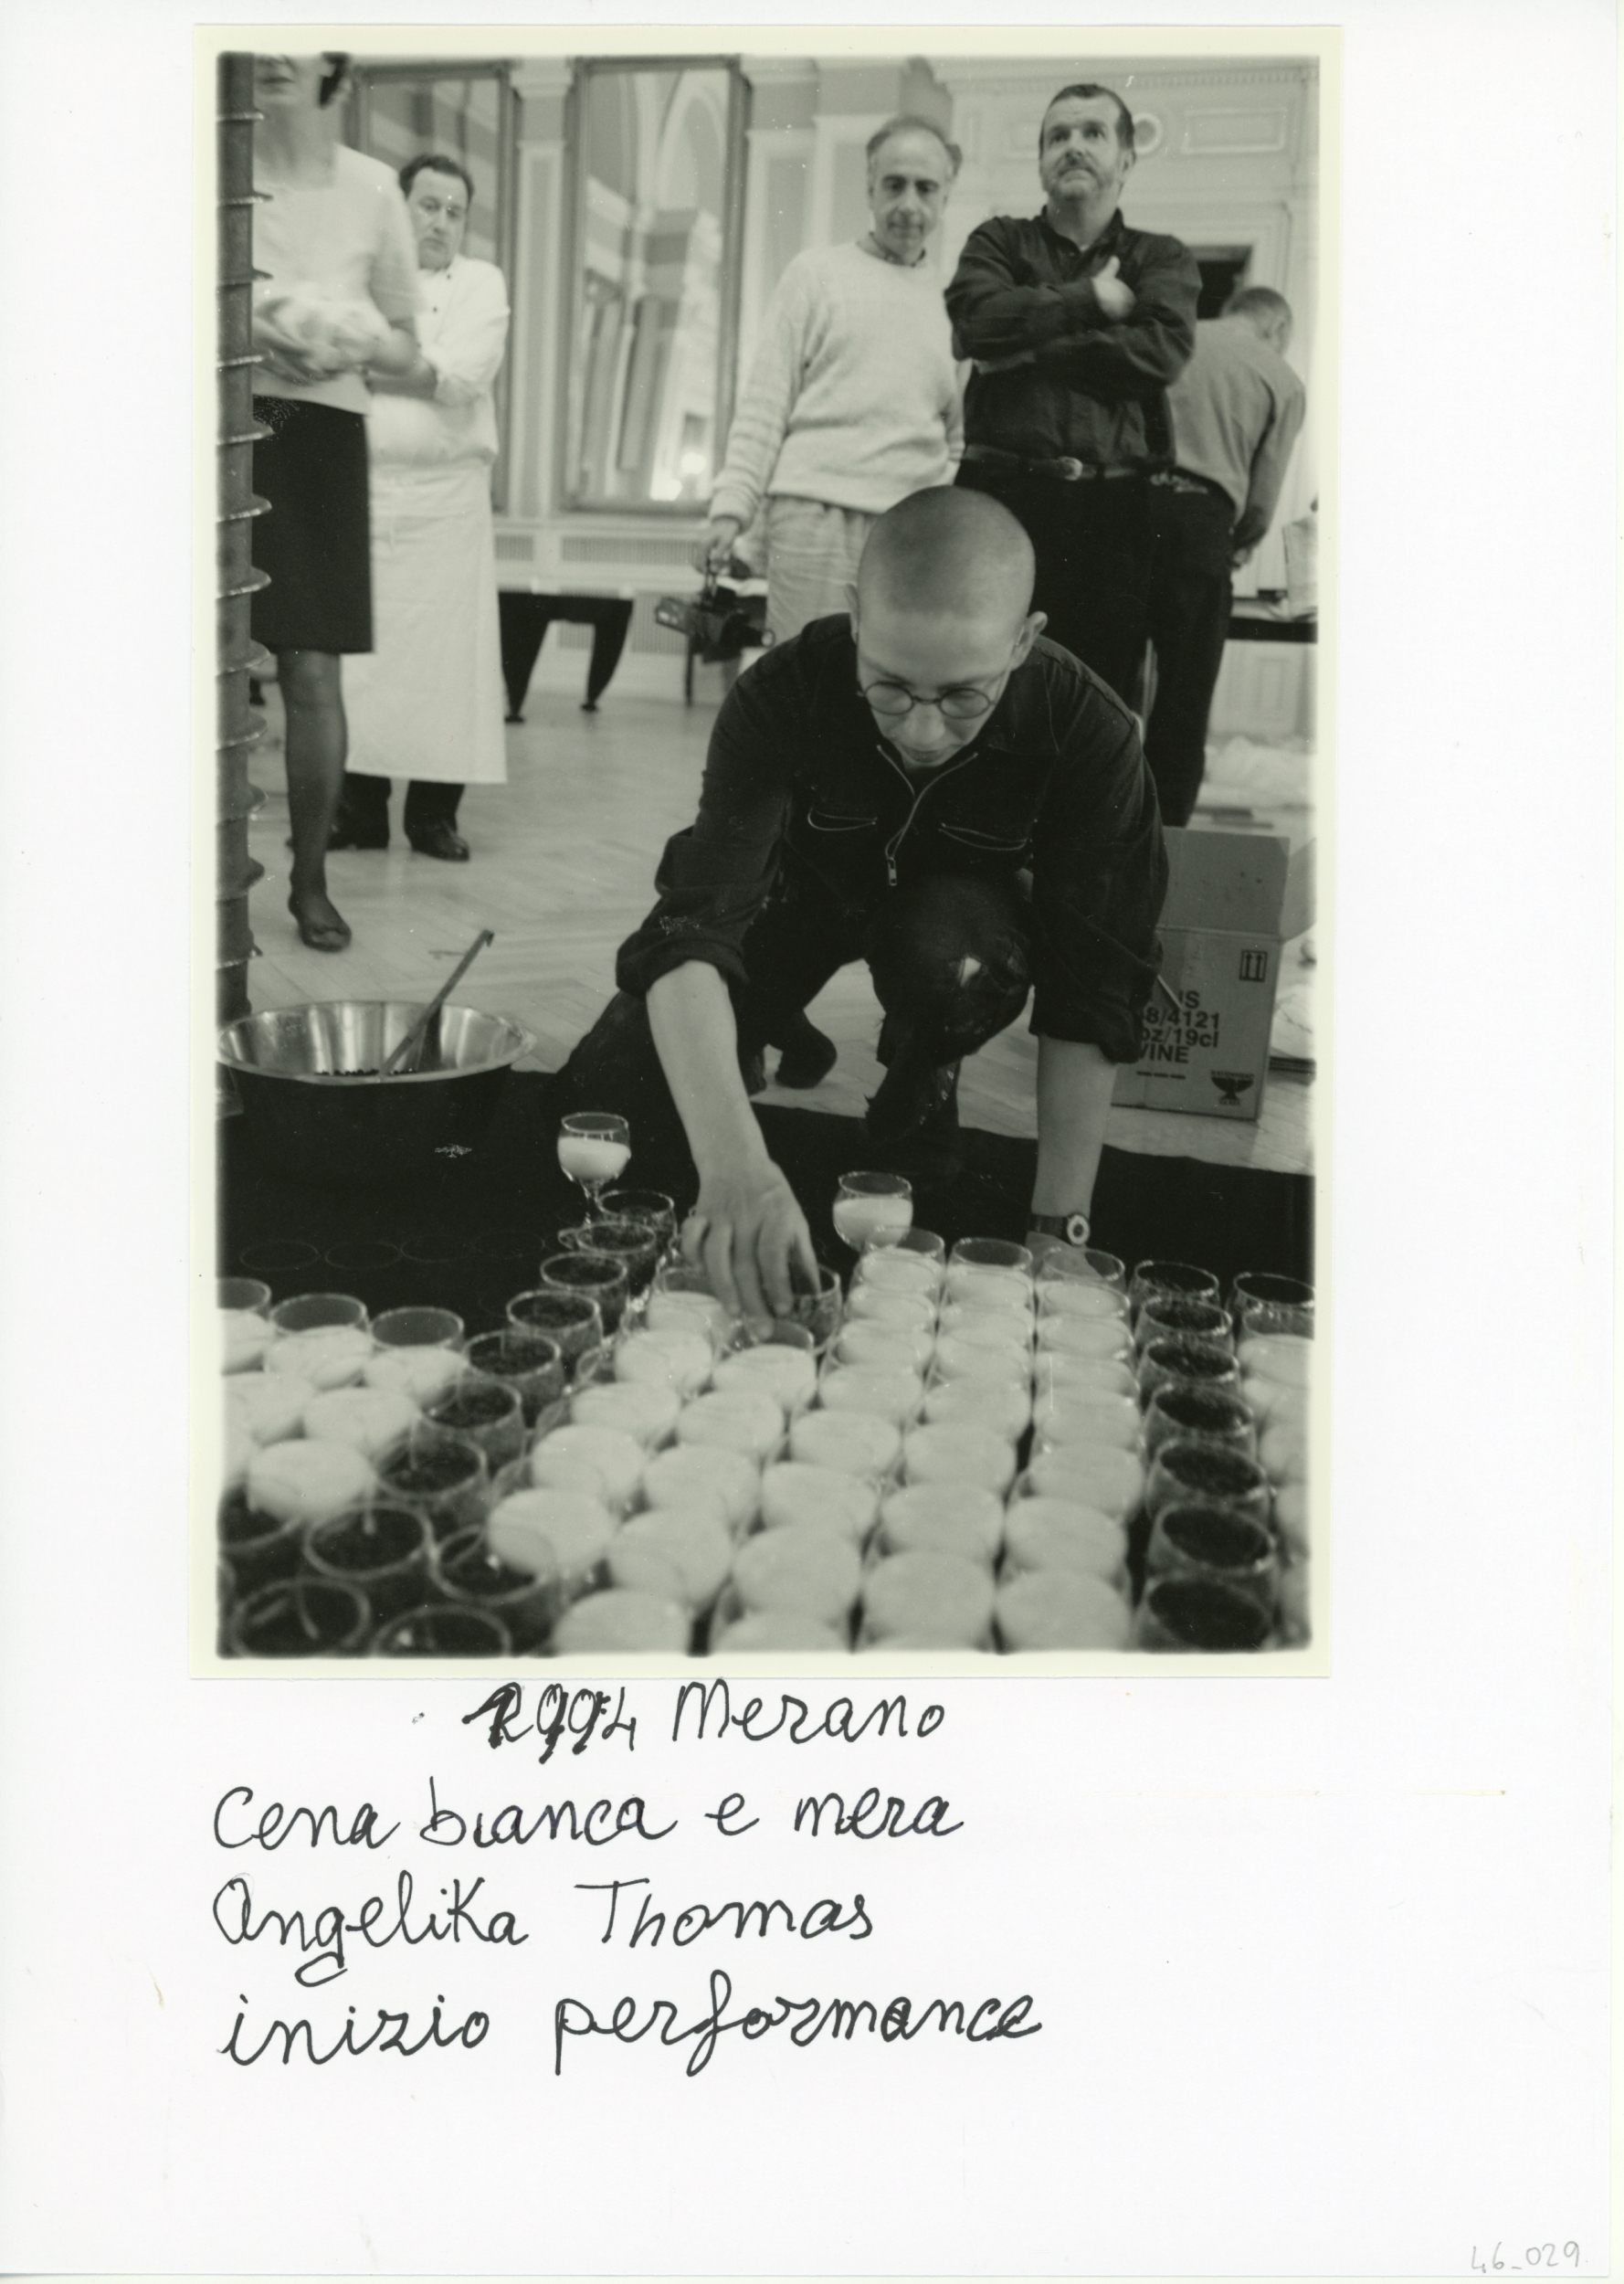 IS
8/4121
oz/19cl
WINE
1994 Merano
Cena bianca e nera
Angelika Thomas
inizio performance
46_029